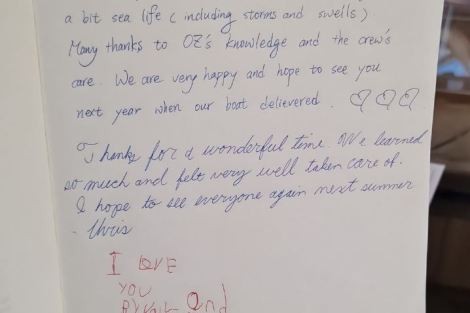 a bit sea life (including storms and swells)
Many thanks to OZ's knowledge and the crew's
care. We are very happy and hope to see you
next year when our boat delievered. ♡♡♡
Thanks for a wonderful time. We learned
so much and felt very well taken care of.
I hope to see everyone again next summer
- Chris
I LOVE
YOU
and